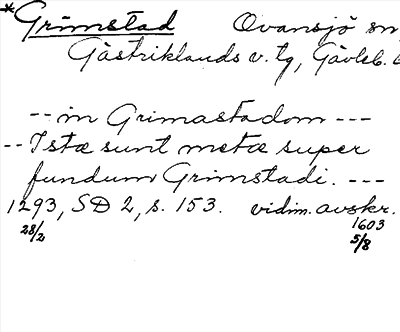 *Grimstad Ovansjö sn
Gästriklands v. tg, Gävleb.
-- in Grimastadom ---
-- Istæ sunt metæ super
fundum Grimstadi. ---
1293, SD 2, s. 153. vidim. avskr.
28/2 1603
5/8